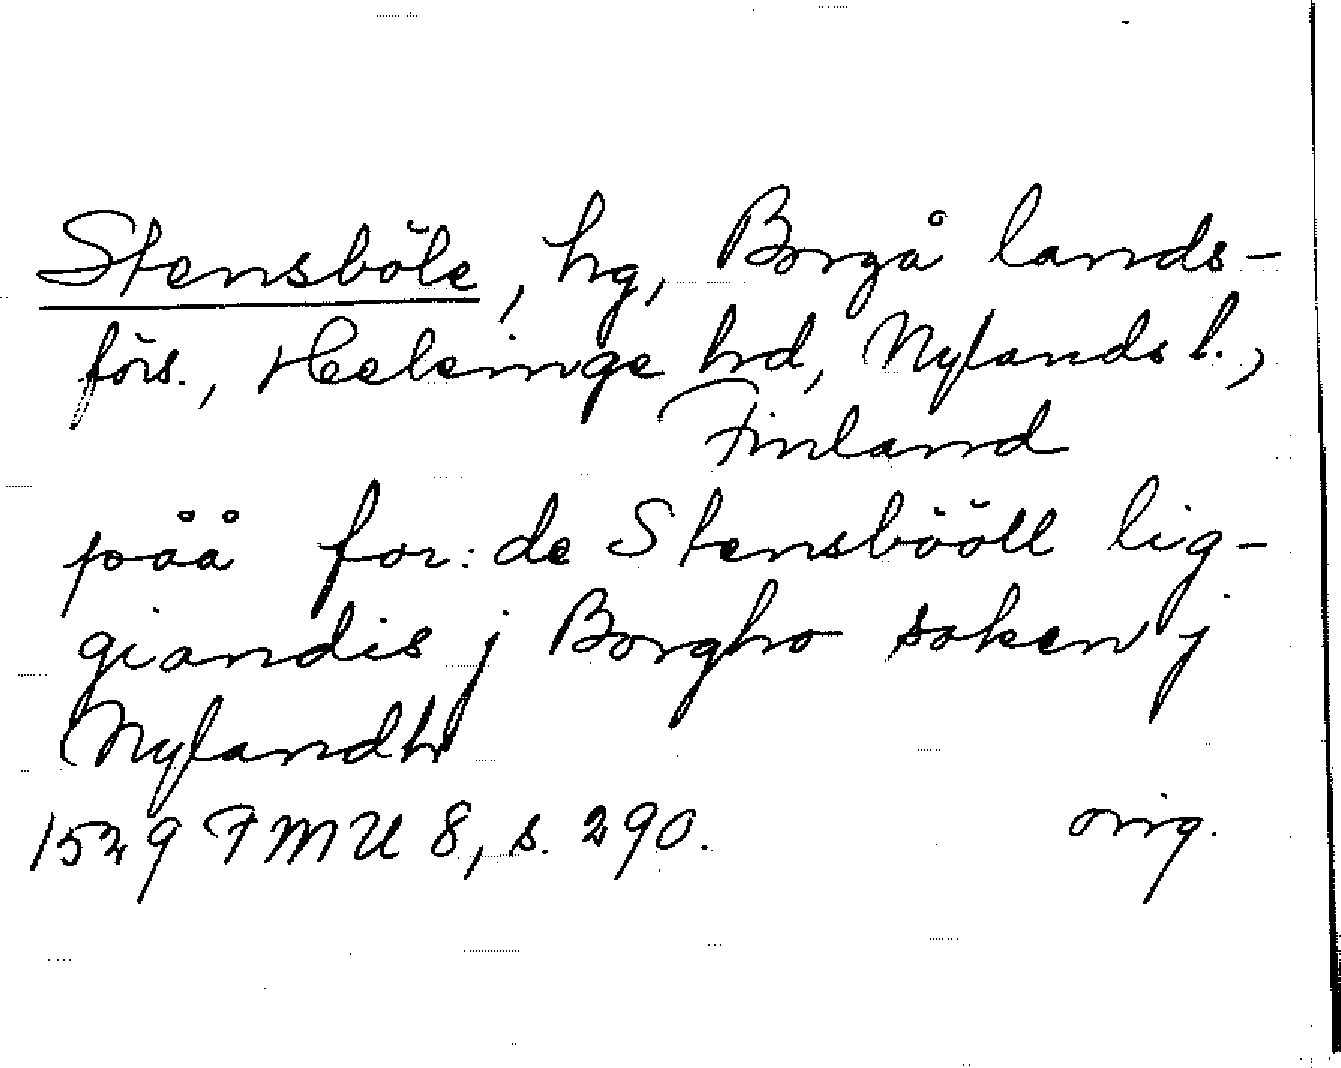 Stensböle, hg, Borgå lands-
förs., Helsinge hd, Nylands l.,
Finland
påå for:de Stensbööll lig-
giandis j Borgho soken j
Nylandh
1529 FMU 8, s. 290. orig.